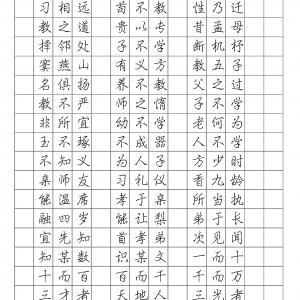 习相远 苟不教 性乃迁
教之道 贵以专 昔孟母
择邻处 子不学 断机杼
窦燕山 有义方 教五子
名俱扬 养不教 父之过
教不严 师之惰 子不学
非所宜 幼不学 老何为
玉不琢 不成器 人不学
不知义 为人子 方少时
亲师友 习礼仪 香九龄
能温席 孝于亲 所当执
融四岁 能让梨 弟于长
宜先知 首孝弟 次见闻
知某数 识某文 一而十
十而百 百而千 千而万
三才者 天地人 三光者